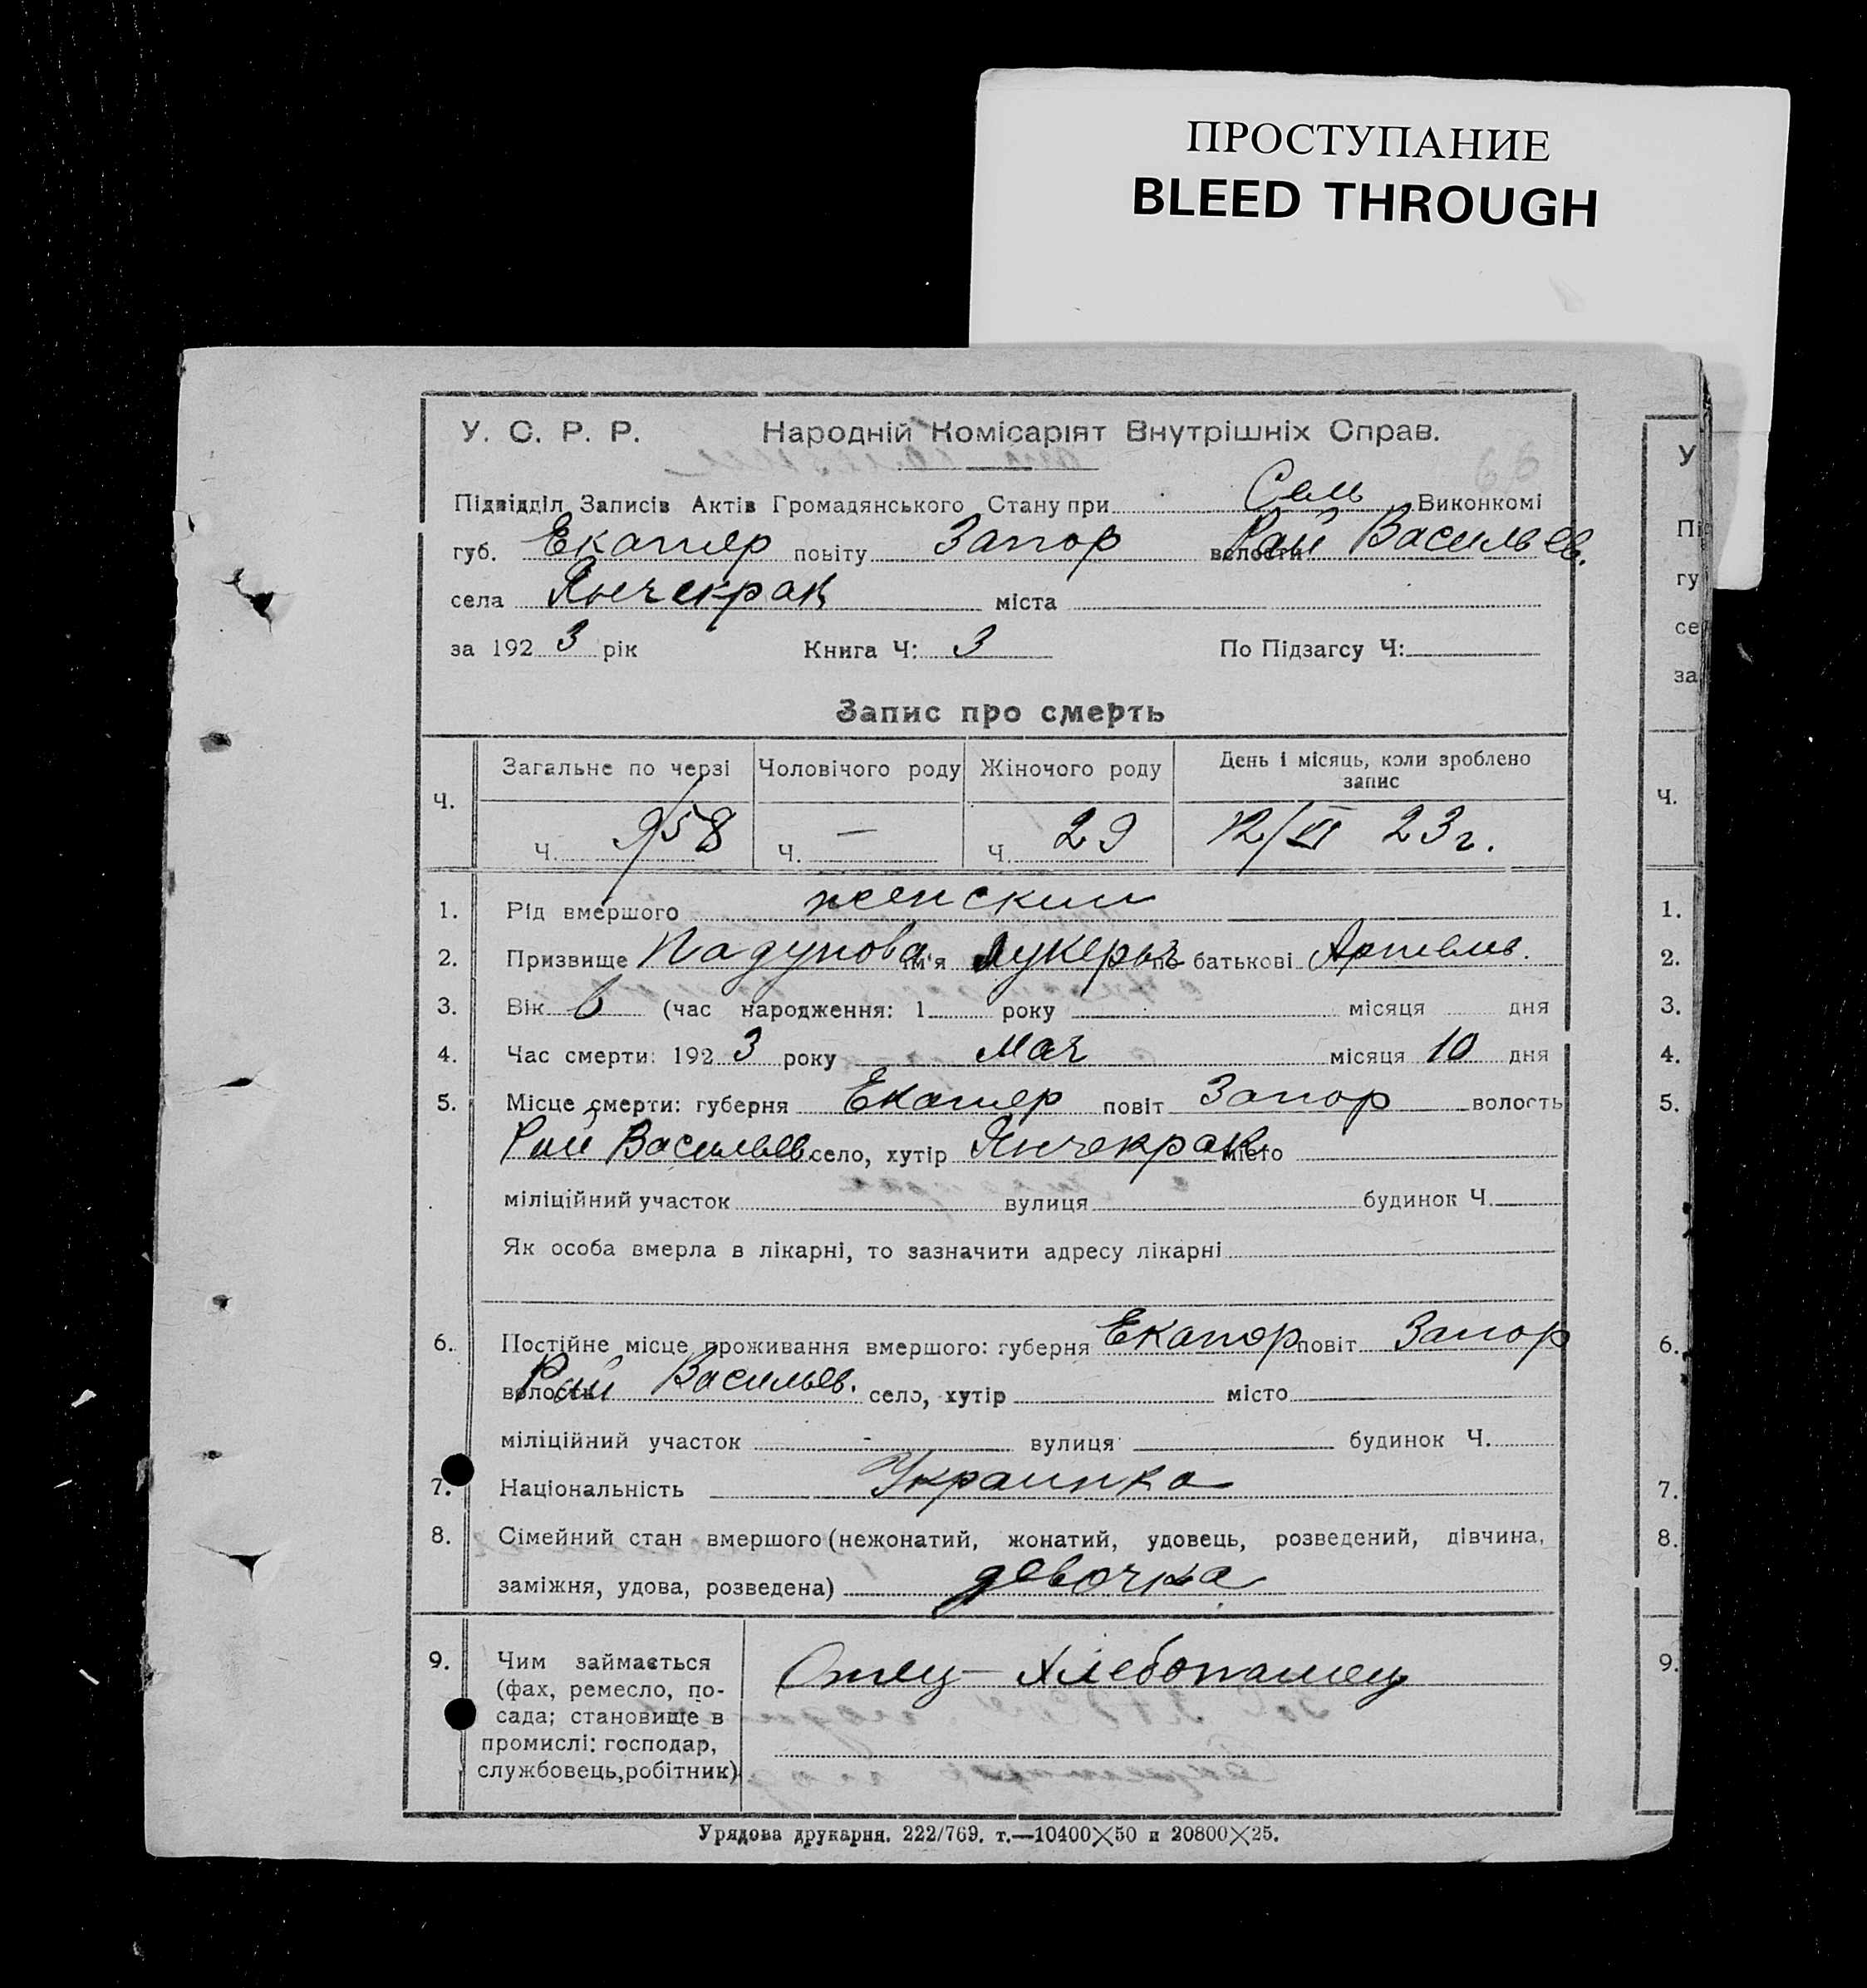 ПРОСТУПАНИЕ
BLEED THROUGH
У. С. Р. Р. Народній Комісаріят Внутрішніх Справ.
Підвідділ Записів Актів Громадянського Стану при Сель Виконкомі
губ. Екатер повіту Запор волости Рай Васильев.
села Янчекрак міста
за 1923 рік Книга Ч: 3 По Підзагсу Ч:
Запис про смерть
Ч. Загальне по черзі Чоловічого роду Жіночого роду День і місяць, коли зроблено запис
Ч. 958 Ч. — Ч. 29 12/VI 23 г.
1. Рід вмершого женский
2. Призвище Падунова ім'я Лукерья по батькові Артемов.
3. Вік 6 (час народження: 1 року місяця дня
4. Час смерти: 1923 року мая місяця 10 дня
5. Місце смерти: губерня Екатер повіт Запор волость
Рай Васильев село, хутір Янчекрак місто
міліційний участок вулиця будинок Ч.
Як особа вмерла в лікарні, то зазначити адресу лікарні
6. Постійне місце проживання вмершого: губерня Екатер повіт Запор
волость Рай Васильев. село, хутір місто
міліційний участок - вулиця будинок Ч.
7. Національність Украинка
8. Сімейний стан вмершого (нежонатий, жонатий, удовець, розведений, дівчина,
заміжня, удова, розведена) девочка
9. Чим займається Отец — хлебопашец
(фах, ремесло, по-
сада; становище в
промислі: господар,
службовець, робітник)
Урядова друкарня. 222/769. т.—10400×50 и 20800×25.
У
Пі
гу
се
за
Ч.
1.
2.
3.
4.
5.
6.
7.
8.
9.